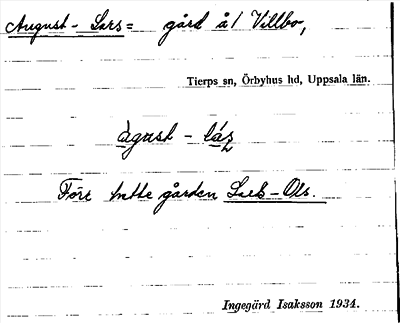 August-Lars= gård å/ Villbo,
Tierps sn, Örbyhus hd, Uppsala län.
àgust - láʒ
Förr hette gården Lars-Ols.
Ingegärd Isaksson 1934.